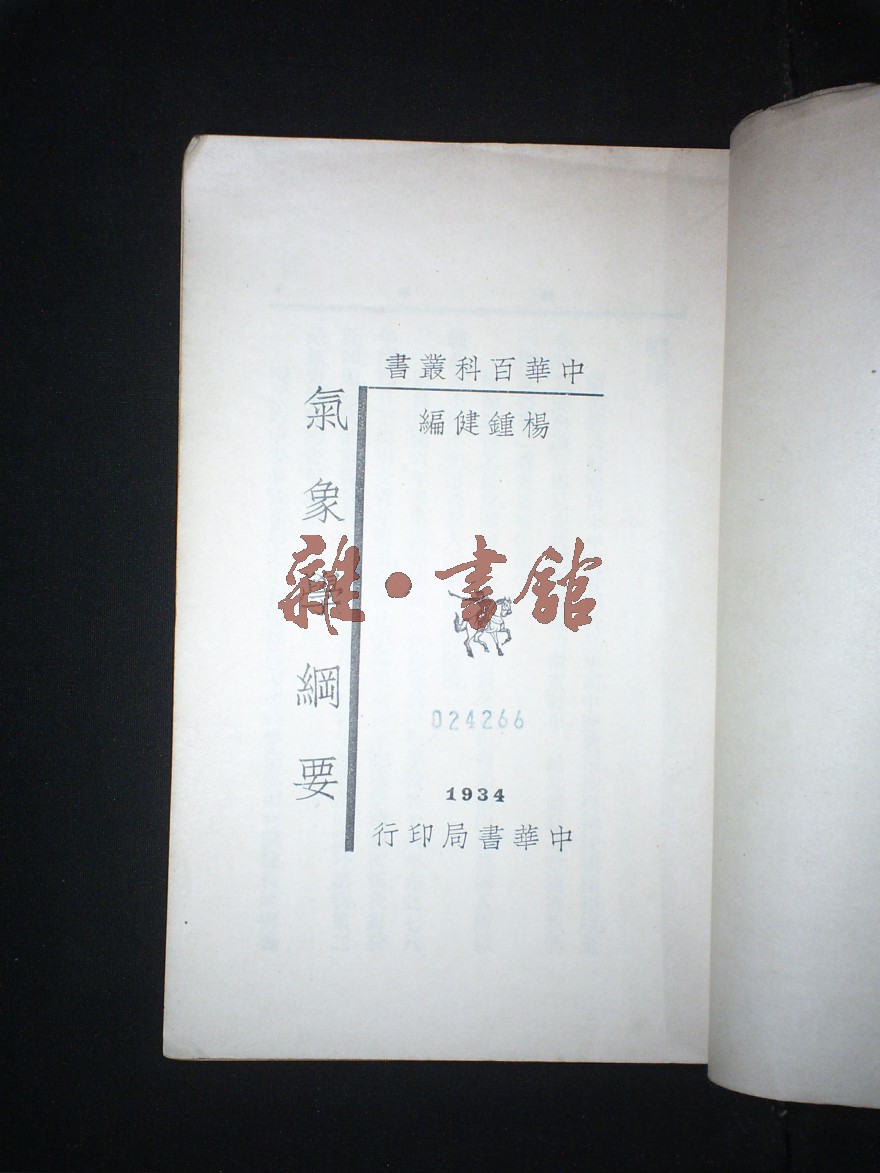 中華百科叢書
楊鍾健編
氣象學綱要
雜·書館
024266
1934
中華書局印行